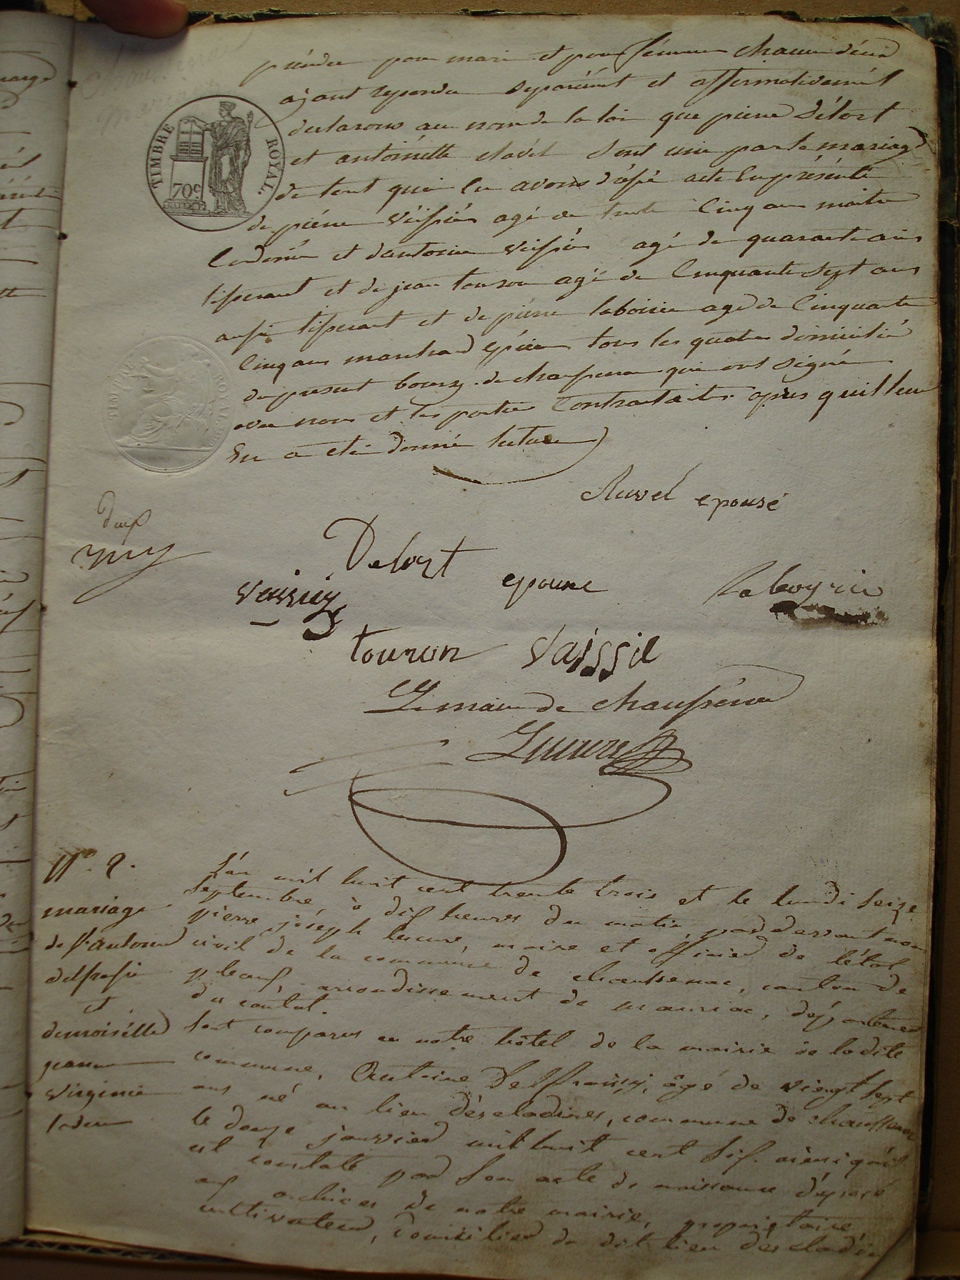 TIMBRE ROYAL
70c
prendre pour mari et pour femme chacun deux
ayant repondu separément et affirmativement
declarons au nom de la loi que pierre Délort
et antoinette clavel sont unie par le mariage
de tout quoi en avons acte en présence
de pierre agé de trente cinq ans
et d'antoine agé de quarante ans
tisserant et de jean touron agé de cinquante sept ans
aussi tisserant et de pierre laboirie agé de cinquante
cinq ans marchand épicier tous les quatre domicilié
du present bourg de chaussenac qui ont signé
avec nous et les parties contractantes après quil leur
en a eté donné lecture
Clavel epousé
Delort epoux Laboyrie
Vaissièy
touron Vaissie
Le maire de chaussenac
Lescure
N° 2.
mariage
de s.r antoine
delfraissi
et
demoiselle
jeanne
virginie
L'an mil huit cent trente trois et le lundi seize
septembre, à dix heures du matin, pardevant nous
pierre joséph lescure, maire et officier de l'état
civil de la commune de chaussenac, canton de
pleaux, arrondissement de mauriac, département
du cantal.
sont comparus en notre hôtel de la mairie de ladite
commune, Antoine Delfraissi, âgé de vingt sept
ans né au lieu d'escladines, commune de chaussenac
le douze janvier mil huit cent six ainsi qu'il
est constaté par son acte de naissance déposé
aux archives de notre mairie, propriétaire
cultivateur, domicilié du dit lieu d'escladines